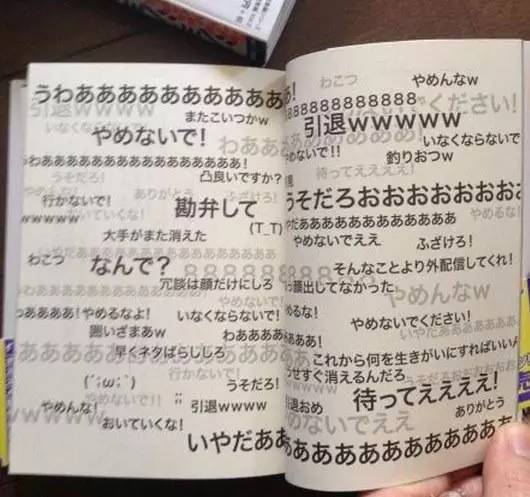 うわああああああああああ
引退www
またこいつかw
いなくならないで
やめないで!
わああああああああああああああああ!
凸良いですか?
うそだろ!
行かないで!
ありがとう
ふざけろ!
勘弁して
おいていくな!
wwwww
(T_T)
大手がまた消えた
わこつ
なんで?
888888888
冗談は顔だけにしろ
やめないで!
あああああ!やめるなよ!
いなくならないで!
囲いざまあw
わあああああ
早くネタばらししろ
行かないで!
(´;ω;`)
うそだろ!
やめんな!
;;
引退wwww
おいていくな!
いやだああ
あ!
わこつ
やめんなw
888888888888
ください!
引退wwwww
いなくならないで
めないで!!
釣りおつw
待ってええええ!
うそだろおおおおおおおお
やだああああああああああああ
やめるな!
やめないでええ
ふざけろ!
そんなことより外配信してくれ!
顔出ししてなかった
やめんなw
めるな!
やめないでください!
いやだああああああ
これから何を生きがいにすればいいん
うせすぐ消えるんだろ
うそだろおおおおおお
待ってええええ!
引退おめ
ありがとう
めないでええ
ああああああああああああ